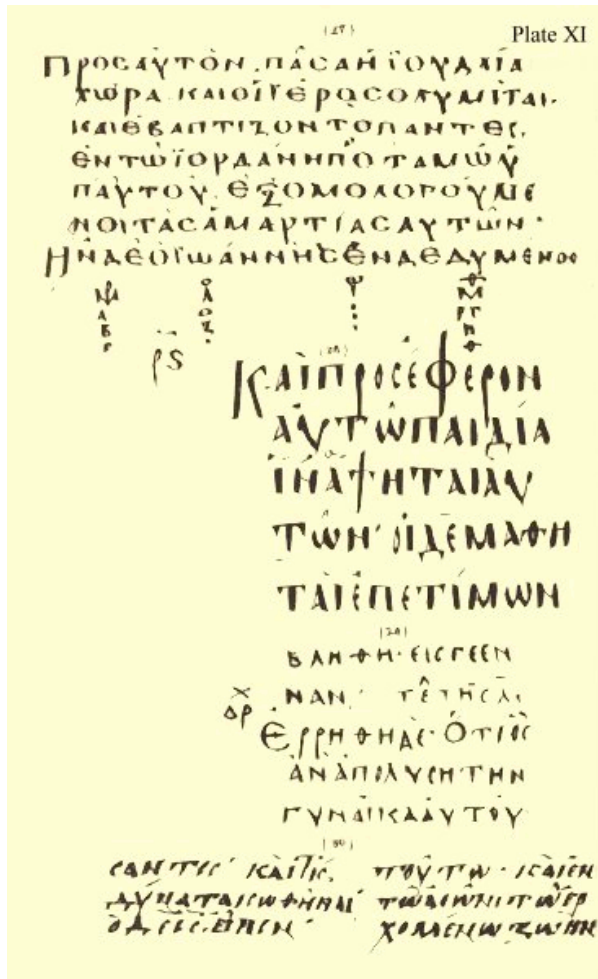 Plate XI
(27)
ΠΡΟCΑΥΤΟΝ. ΠΑCΑΗΪΟΥΔΑΙΑ
ΧΩΡΑ. ΚΑΙΟΙΪΕΡΟCΟΛΥΜΙΤΑΙ·
ΚΑΙΕΒΑΠΤΙΖΟΝΤΟΠΑΝΤΕC.
ΕΝΤΩΪΟΡΔΑΝΗΠΟΤΑΜΩΫ
ΠΑΥΤΟΥ. ΕΞΟΜΟΛΟΓΟΥΜΕ
ΝΟΙΤΑCΑΜΑΡΤΙΑCΑΥΤΩΝ·
ΗΝΔΕΟΪΩΑΝΝΗCΕΝΔΕΔΥΜΕΝΟC
(28)
ΚΑΙΠΡΟCΕΦΕΡΟΝ
ΑΥΤΩΠΑΙΔΙΑ
ΪΝΑΑΨΗΤΑΙΑΥ
ΤΩΝ· ΟΙΔΕΜΑΘΗ
ΤΑΙΕΠΕΤΙΜΩΝ
(29)
ΒΛΗΘΗ·ΕΙCΓΕΕΝ
ΝΑΝ·
ΕΡΡΗΘΗΔΕ·ΟΤΙΟC
ΑΝΑΠΟΛΥCΗΤΗΝ
ΓΥΝΑΙΚΑΑΥΤΟΥ
(30)
CΑΝΤΕC· ΚΑΙΤΙC.
ΔΥΝΑΤΑΙCΩΘΗΝΑΙ
ΟΔΕΙCΕΙΠΕΝ·
ΠΟΥΤΩ·ΚΑΙΕΝ
ΤΩΑΙΩΝΙΤΩΕΡ
ΧΟΜΕΝΩΖΩΗΝ